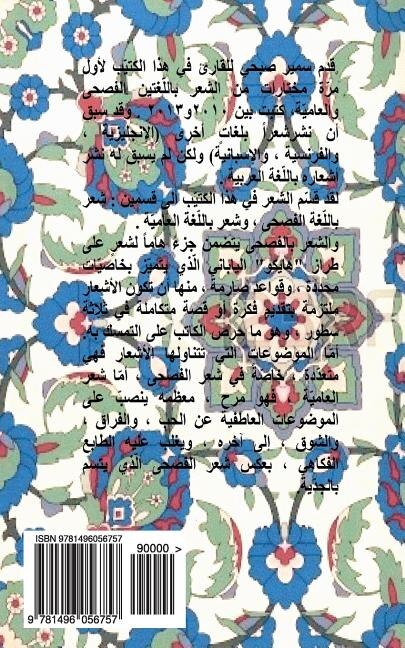 قدم سمير صبحي للقارئ في هذا الكتيب لأول
مرة مختارات من الشعر باللّغتين الفصحى
والعاميّة، كتبت بين ٢٠١٠ و٢٠١٣ . وقد سبق
أن نشر شعراً بلغات أخرى (الإنجليزية ،
والفرنسية ، والاسبانية) ولكن لم يسبق له نشر
أشعاره باللّغة العربية .
لقد قسّم الشعر في هذا الكتيب الى قسمين : شعر
باللّغة الفصحى ، وشعر باللّغة العاميّة .
والشعر بالفصحى يتضمن جزءً هاماً لشعر على
طراز "هايكو" الياباني الّذي يتميّز بخاصيات
محددة ، وقواعد صارمة ، منها أن تكون الأشعار
ملتزمة بتقديم فكرة أو قصة متكاملة في ثلاثة
سطور ، وهو ما حرص الكاتب على التمسك به.
أمّا الموضوعات التي تتناولها الأشعار فهي
متعدّدة ، خاصة في شعر الفصحى ، أمّا شعر
العاميّة ، فهو مرح ، معظمه ينصبّ على
الموضوعات العاطفية عن الحب ، والفراق ،
والشوق ، إلى آخره ، ويغلب عليه الطابع
الفكاهي ، بعكس شعر الفصحى الذي يتسم
بالجدّية.
ISBN 9781496056757
90000 >
9 781496 056757